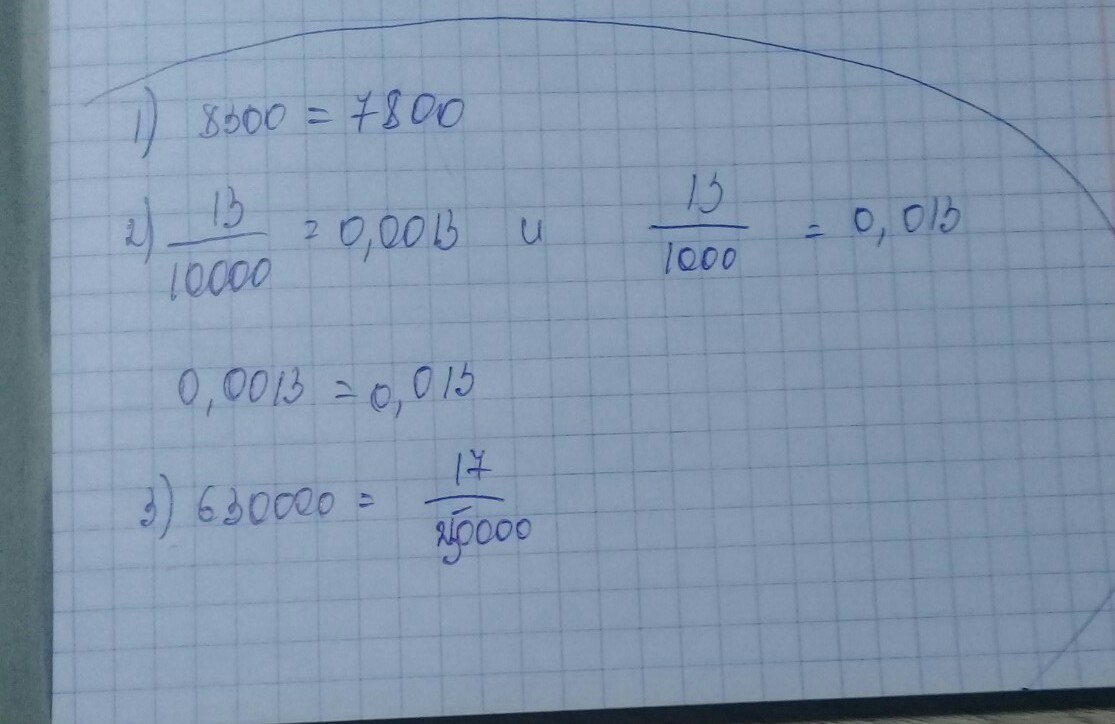 1) 8300 = 7800
2) 13/10000 = 0,0013 и 13/1000 = 0,013
0,0013 = 0,013
3) 630000 = 17/